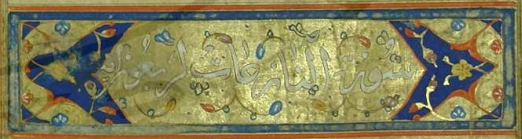 سورة النازعات اربعون اية